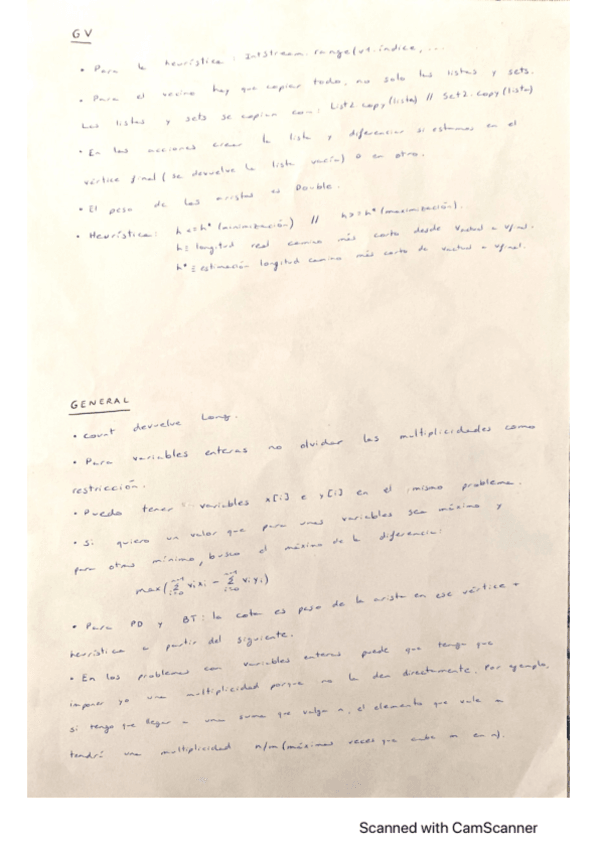 GV
• Para la heurística: IntStream.range(v1.indice, ...
• Para el vecino hay que copiar todo, no solo las listas y sets.
Las listas y sets se copian con: List2.copy(lista) // Set2.copy(lista)
• En las acciones crear la lista y diferenciar si estamos en el
vértice final (se devuelve la lista vacía) o en otro.
• El peso de las aristas es Double.
• Heurística: h<=h* (minimización) // h>=h* (maximización).
h ≡ longitud real camino más corto desde Vactual a Vfinal.
h* ≡ estimación longitud camino más corto de Vactual a Vfinal.
GENERAL
• count devuelve Long.
• Para variables enteras no olvidar las multiplicidades como
restricción.
• Puedo tener variables x[i] e y[i] en el mismo problema.
• Si quiero un valor que para unas variables sea máximo y
para otras mínimo, busco el máximo de la diferencia:
max(∑ᵢ₌₀ⁿ⁻¹ vᵢxᵢ - ∑ᵢ₌₀ⁿ⁻¹ vᵢyᵢ)
• Para PD y BT: la cota es peso de la arista en ese vértice +
herrística a partir del siguiente.
• En los problemas con variables enteras puede que tenga que
imponer yo una multiplicidad porque no la den directamente. Por ejemplo,
si tengo que llegar a una suma que valga n, el elemento que vale m
tendrá una multiplicidad n/m (máximas veces que cabe m en n).
Scanned with CamScanner